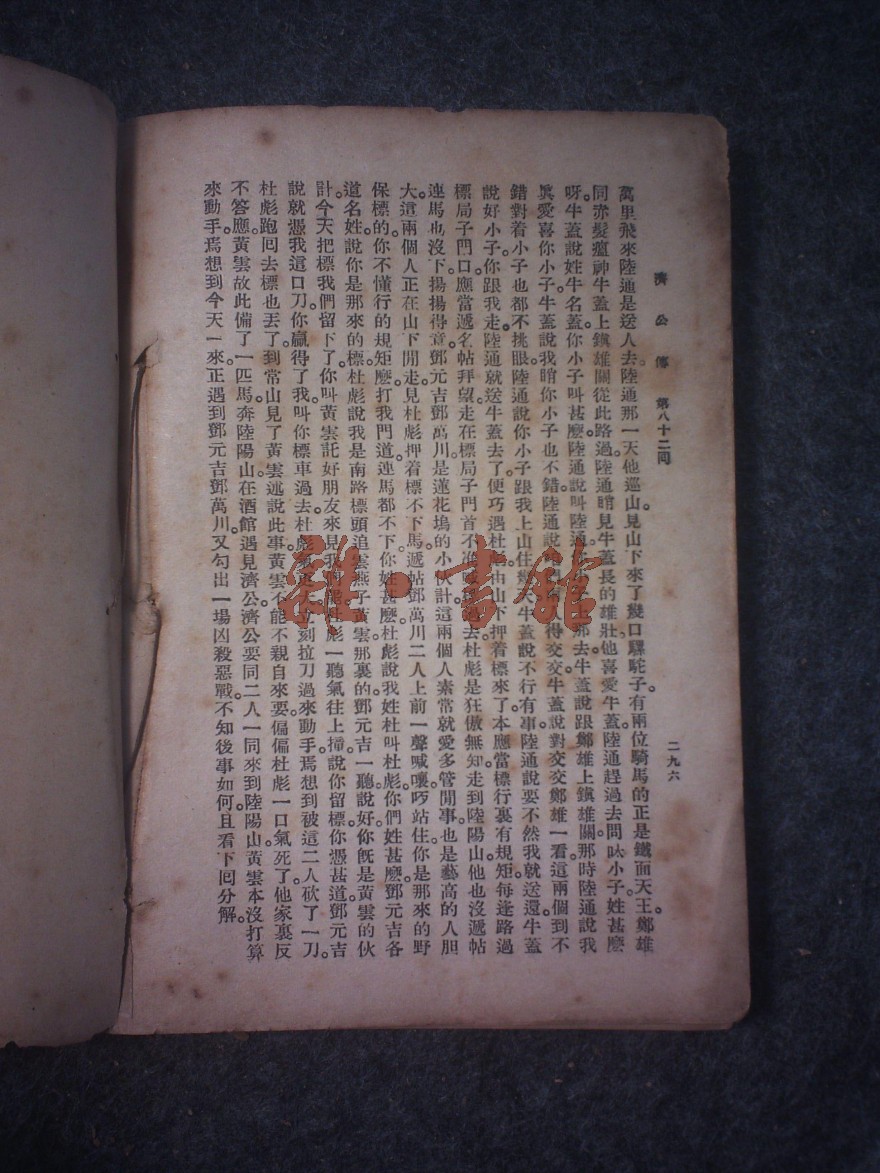 濟公傳 第八十二回
二九六
萬里飛來陸通是送人去。陸通那一天他巡山。見山下來了幾口騾駝子。有兩位騎馬的正是鐵面天王鄭雄
同赤髮瘟神牛蓋上鎮雄關從此路過。陸通睄見牛蓋長的雄壯。他喜愛牛蓋。陸通趕過去問呔小子姓甚麼
呀。牛蓋說姓牛名蓋。你小子叫甚麼。陸通說叫陸通。小子上那去。牛蓋說跟鄭雄上鎮雄關。那時陸通說我
眞愛喜你小子。牛蓋說我睄你小子也不錯。陸通說得交交。牛蓋說對交交。鄭雄一看這兩個到不
錯。對着小子也都不挑眼。陸通說你小子跟我上山住幾天。牛蓋說不行有事。陸通說要不然我就送還牛蓋
說好小子。你跟我走。陸通就送牛蓋去了。便巧遇杜彪由山下押着標來了。本應當標行裏有規矩。每逢路過
標局子門口。應當遞名帖拜望。走在標局子門首不准過去。杜彪是狂傲無知。走到陸陽山他也沒遞帖
連馬也沒下。揚揚得意。鄧元吉鄧萬川是蓮花塢的小伙計。這兩個人素常就愛多管閒事。也是藝高的人胆
大。這兩個人正在山下閒走。見杜彪押着標不下馬。遞帖。鄧萬川二人上前一聲喊嚷。呔站住。你是那來的野
保標的。你不懂行的規矩麼。打我門道。連馬都不下。你姓甚麼。杜彪說我姓杜叫杜彪。你們姓甚麼。鄧元吉各
道名姓。說你是那來的標。杜彪說我是南路標頭追雲燕子黃雲那裏的。鄧元吉一聽說好。你旣是黃雲的伙
計。今天把標我們留下了。你叫黃雲託好朋友來見我們。杜彪一聽氣往上撞。說你留標你憑甚道。鄧元吉
說就憑我這口刀。你贏得了我。叫你標車過去。杜彪氣更大。立刻拉刀過來動手。焉想到被這二人砍了一刀。
杜彪跑回去標也丟了。到常山見了黃雲述說此事。黃雲不能不親自來要。偏偏杜彪一口氣死了。他家裏反
不答應。黃雲故此備了一匹馬。奔陸陽山。在酒館遇見濟公。濟公要同二人一同來到陸陽山。黃雲本沒打算
來動手。焉想到今天一來。正遇到鄧元吉鄧萬川。又勾出一場凶殺惡戰。不知後事如何。且看下回分解。
雜·書館